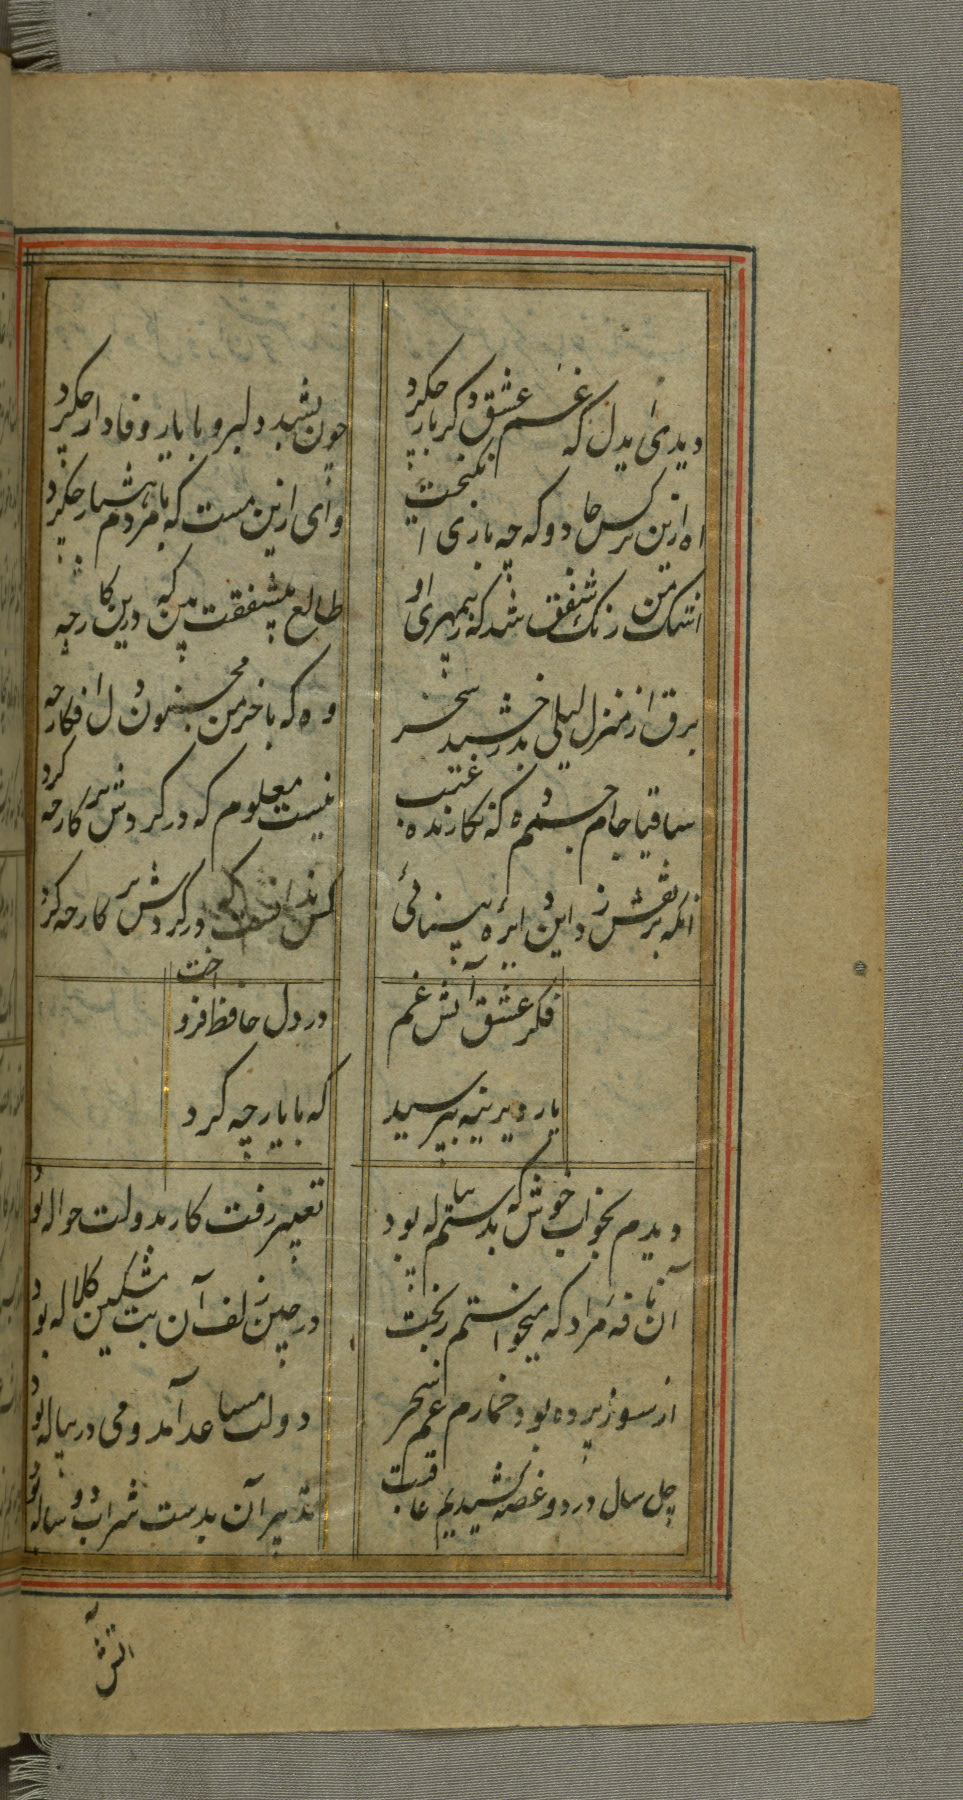 دیدی ای دل که غم عشق دگر بار چه کرد
چون بشد دلبر و با یار وفادار چه کرد
اه ازین نرکس جادو که چه بازی انکیخت
وای ازین مست که با مردم هشیار چه کرد
اشک من رنک شفق شد که ز بیمهری او
طالع بیشفقت بین که درین کار چه
برق از منزل لیلی بدرخشید سحر
وه که با خرمن مجنون دل افکار چه
ساقیا جام
نیست معلوم که در کردش پر کار چه کرد
انکه بر نقش زد این دایره مینائی
کس ندانست که در کردش پر کار چه کرد
فکر عشق آتش غم
در دل حافظ افروخت
یار دیرینه ببینید
که با یار چه کرد
دیدم بخواب خوش که بدستم پیاله بود
تعبیر رفت کار بدولت حواله بود
آن نافه مراد که میخواستم ز بخت
در چین زلف آن بت مشکین کلاله بود
از سوز برده بود خمارم غم سحر
دولت مساعد آمد و می در پیاله بود
چل سال درد و غصه کشیدیم عاقبت
تدبیر آن بدست شراب دو ساله بود